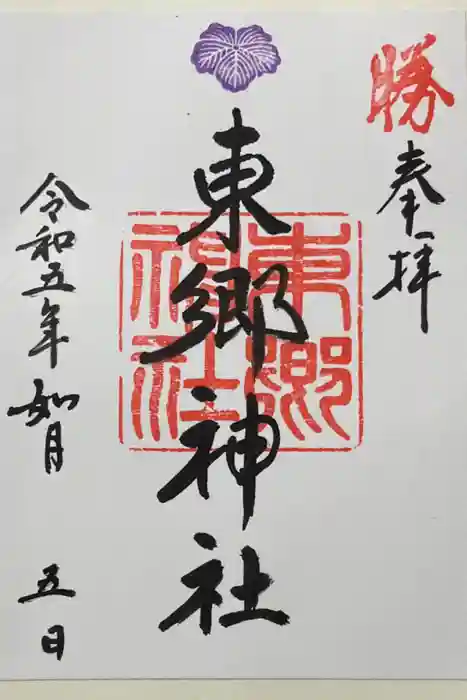 勝
奉拝
東郷神社
東郷神社
令和五年如月
五日